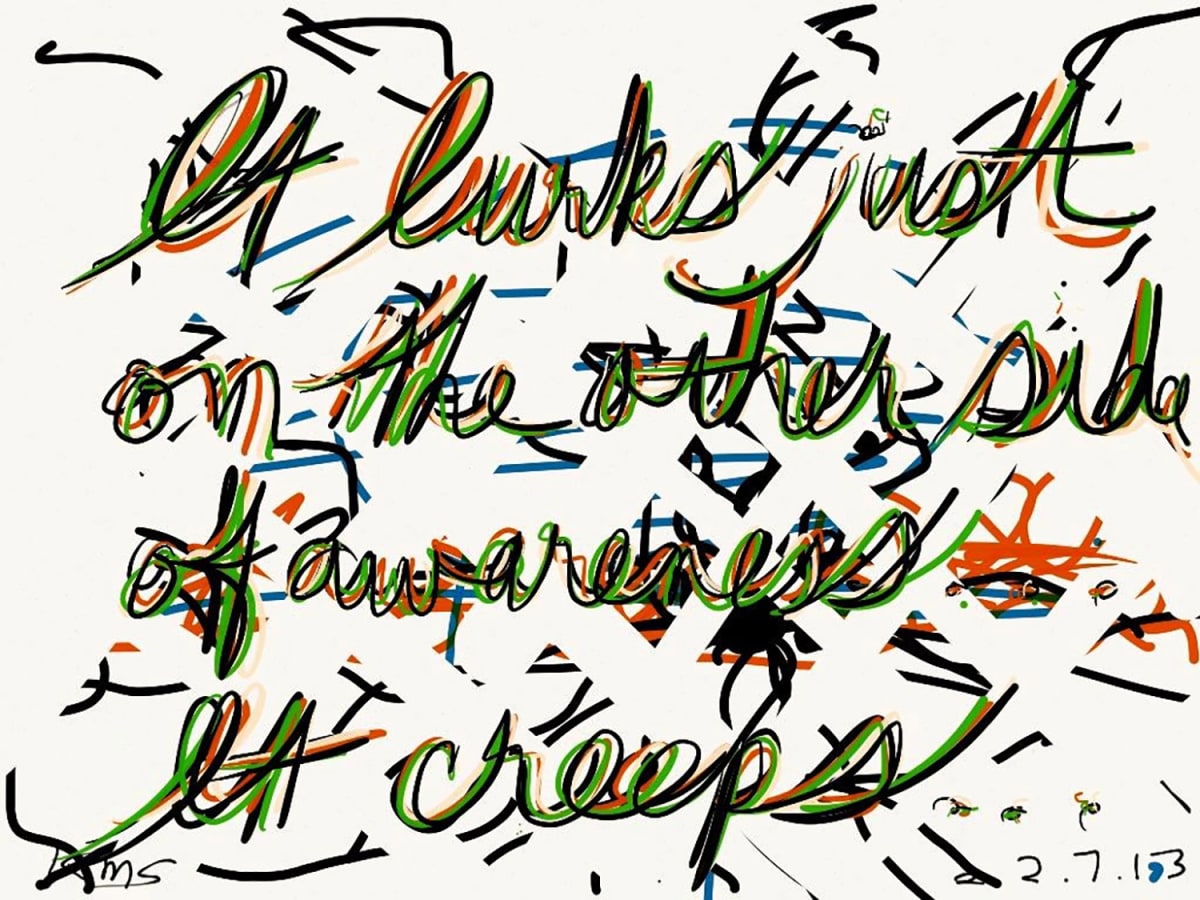 It lurks just
on the other side
of awareness ...
It creeps ...
2.7.13